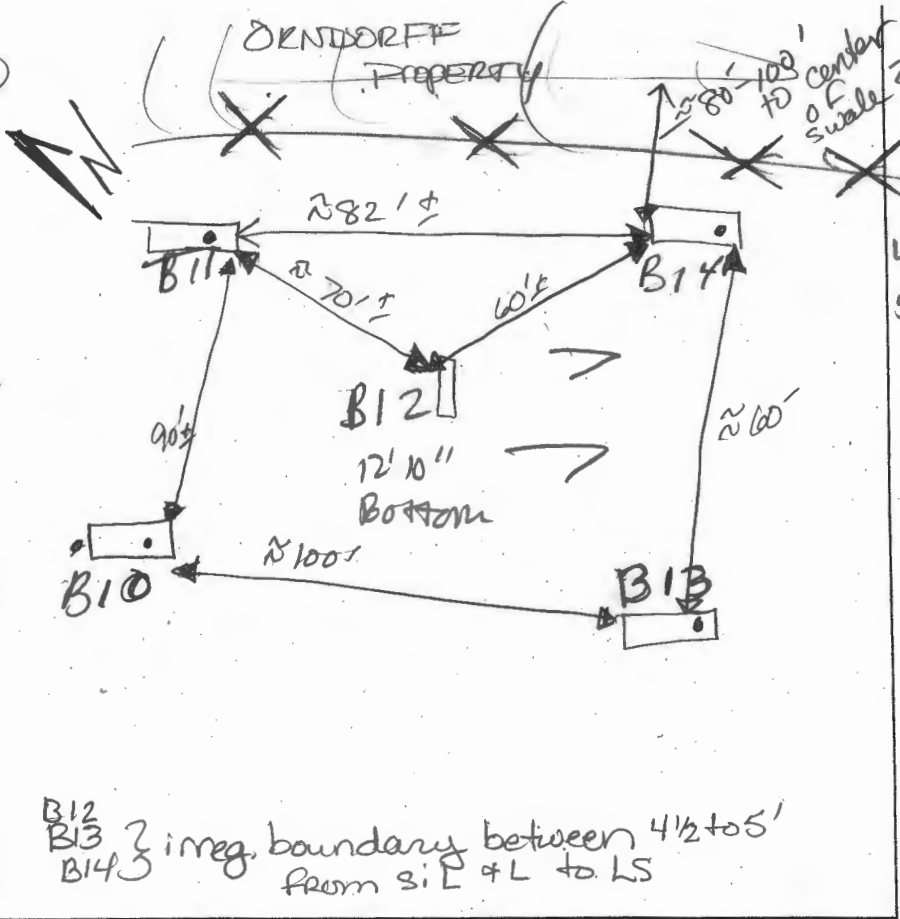 ORNDORFF
PROPERTY
≈80'-100'
to center
of
swale
N
≈82'±
B11
B14
≈70'±
60'±
B12
12'10"
Bottom
90'±
≈60'
B10
≈100±
B13
B12
B13 } irreg. boundary between 4½ to 5'
B14
from SiL & L to LS